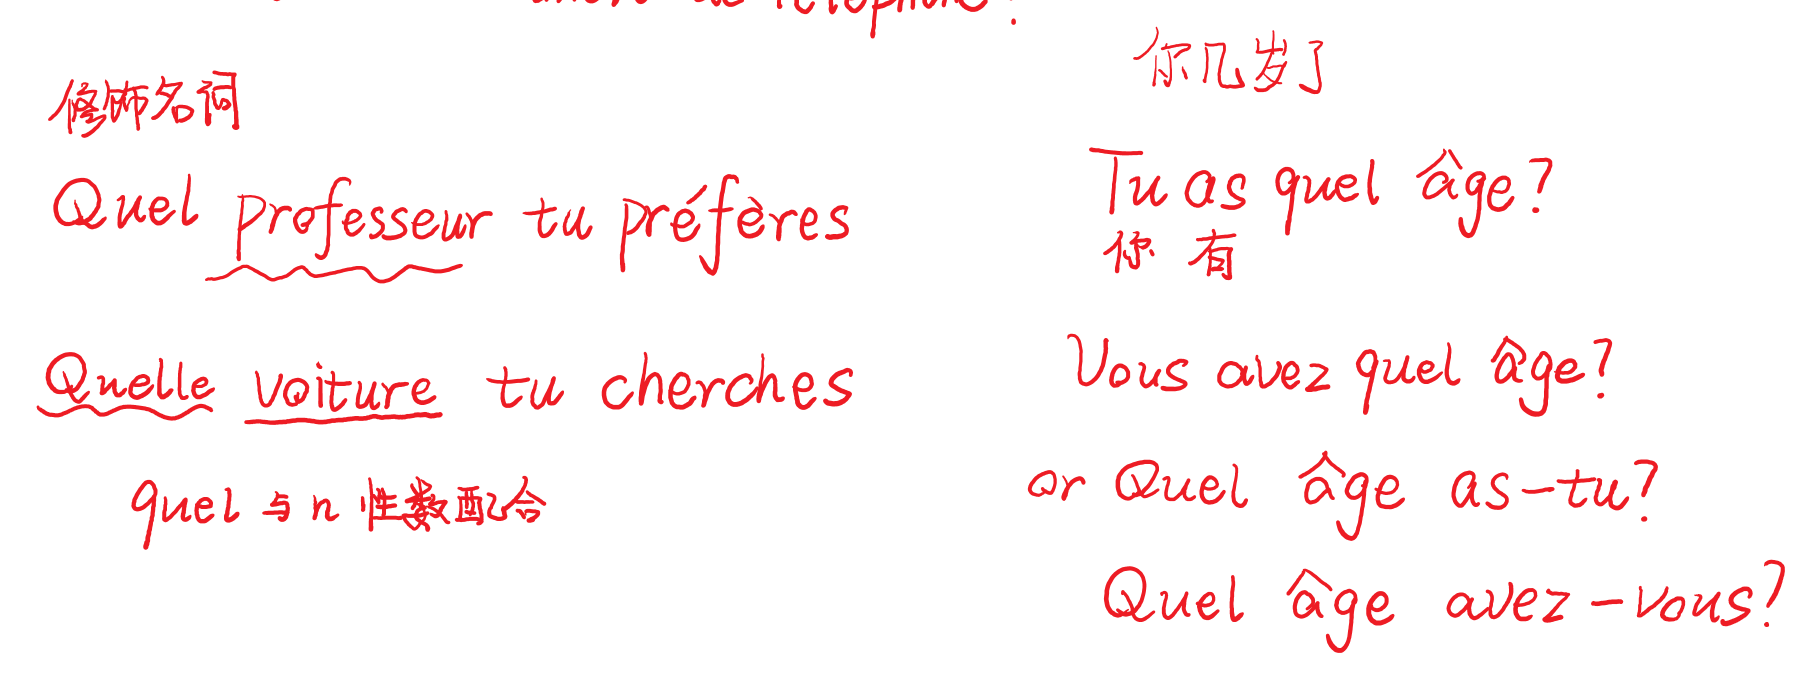 de téléphone?
修饰名词
Quel professeur tu préfères
Quelle voiture tu cherches
quel 与 n 性数配合
你几岁了
Tu as quel âge?
你 有
Vous avez quel âge?
or Quel âge as-tu?
Quel âge avez-vous?